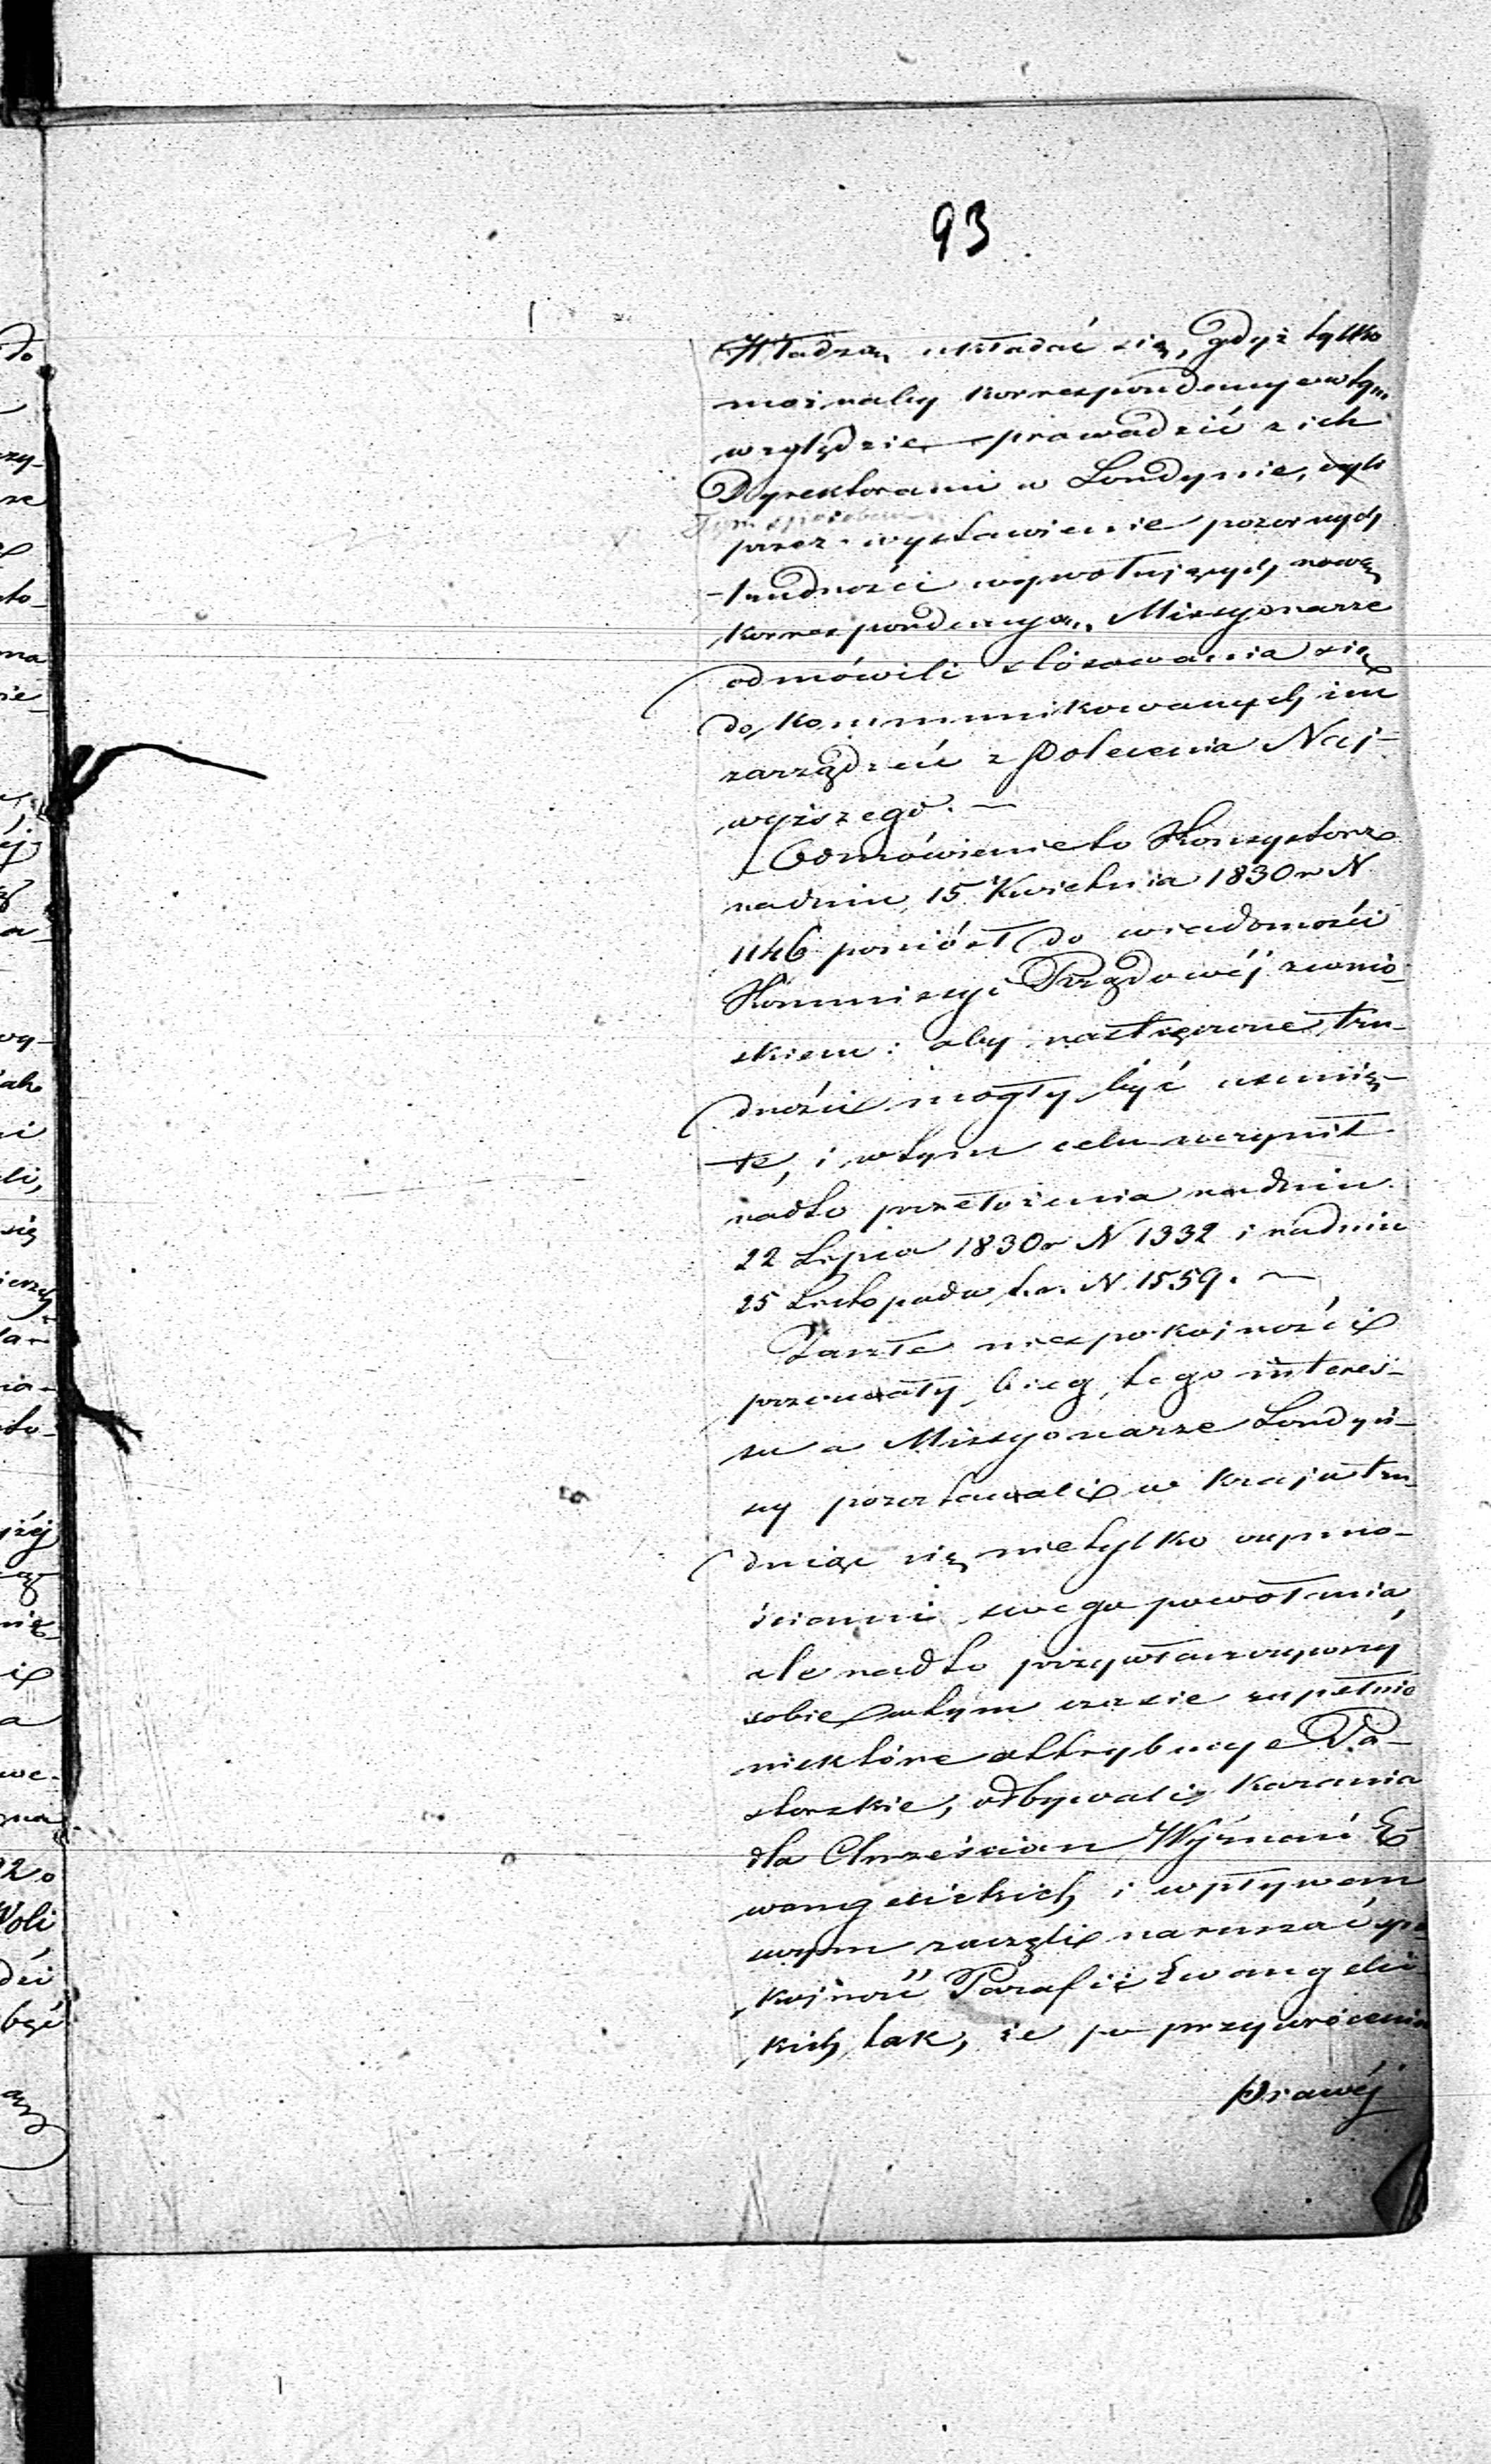 93
Władzą układać się, gdyż tylko
możnaby korrespondencye w tym
względzie prowadzić z ich
Dyrektorami w Londynie, czyli
Tym sposobem
przez wystawienie pozornych
trudności wywołujących nową
korrespondencyą, Missyonarze
odmówili stósowania się
do kommunikowanych im
zarządzeń z Polecenia Naj-
wyższego. —
Odmówienie to Konsystorz
nadniu 15 Kwietnia 1830 r N
1146 poniósł do wiadomości
Kommissyi Rządowéj z wnio-
skiem: aby nastręczone tru-
dności mogły być usunię-
te, i w tym celu uczynił
nadto przełożenia nadniu
22 Lipca 1830 r N 1332 i nadniu
25 Listopada t.r. N. 1559. —
Zaszłe niespokojności
przerwały bieg tego interes-
su a Missyonarze Londyń-
scy pozostawali w kraju tru-
dniąc się nietylko czynno-
ściami swego powołania,
ale nadto przywłaszczywszy
sobie w tym czasie zupełnie
niektóre attrybucye Pa-
storskie, odbywali Kazania
dla Chrześcian Wyznań E-
wangelickich i wpływem
swym zaczęli naruszać spo-
kojność Parafii Ewangelic-
kich tak, że po przywróceniu
prawéj